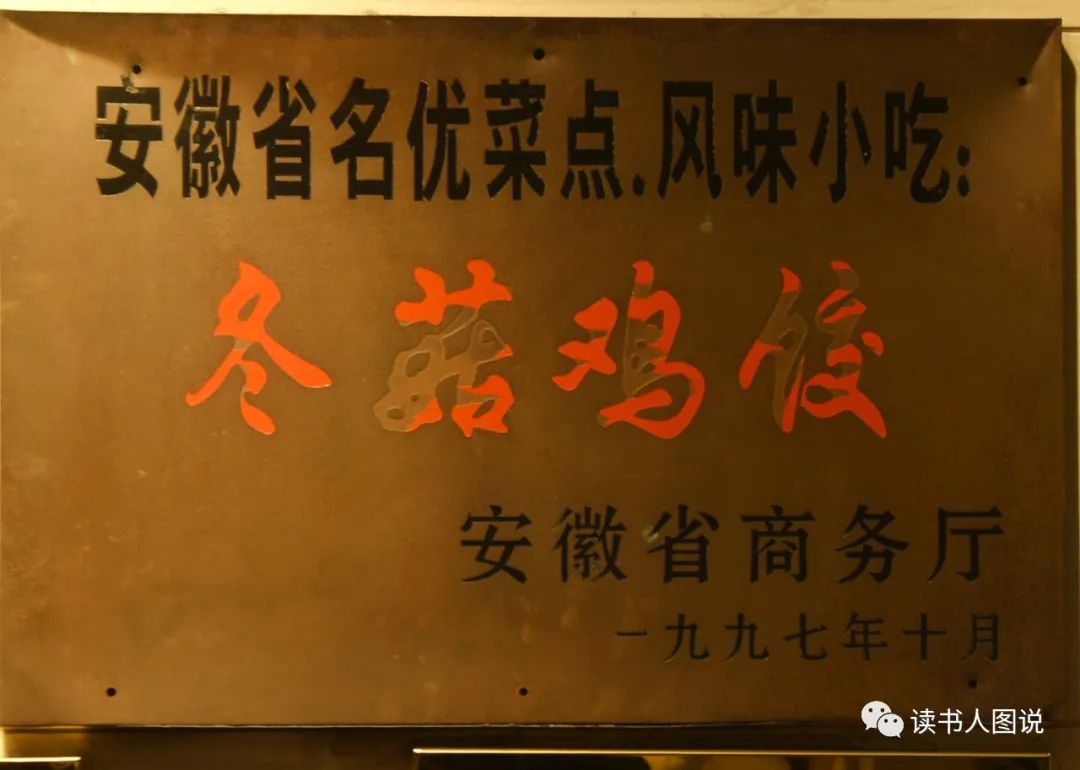 安徽省名优菜点.风味小吃:
冬菇鸡饺
安徽省商务厅
一九九七年十月
读书人图说